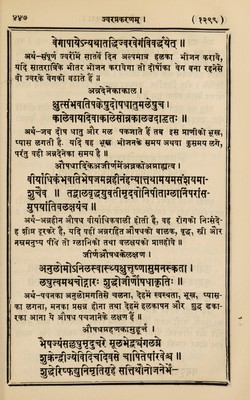 ४४७
ज्वरप्रकरणम् ।
(१२९९
वेगापायेऽन्यथातद्धिज्वरवेगंविवर्द्धयेत् ॥
अर्थ-संपूर्ण ज्वरोंमें सातवें दिन अल्पमात्र हलका भोजन करावे,
यदि सातरात्रिके भीतर भोजन करावेगा तो दोषोंका वेग बना रहनेसे
वो ज्वरके वेगको बढाते हैं ॥
अन्नदेनेकाकाल ।
क्षुत्संभवतिपक्वेषुदोषधातुमलेषुच ।
कालेवायदिवाकालेसोन्नकालउदाहृतः ॥
अर्थ-जब दोष धातु और मल पकजाते हैं तब इस प्राणीको भूख,
प्यास लगती है. यदि वह भूख भोजनके समय अथवा कुसमय लगे,
परंतु वही अन्नदेनेका समय है ॥
औषधादिकेअजीर्णमेंअन्नकोअग्राह्यत्व ।
वीर्याधिकंभवतिभेषजमन्नहीनंहन्यात्तथामयमसंशयमा-
शुचैव ॥ तद्बालवृद्धयुवतीमृदवोनिपीताग्लानिंपरांस-
मुपयांतिबलक्षयंच ॥
अर्थ-अन्नहीन औषध वीर्याधिकवाली होती है, वह रोगको निःसंदे-
ह शीघ्र हरकरे है. यदि यही अन्नरहित औषधको बालक, वृद्ध, स्त्री और
नम्रमनुष्य पीवे तो ग्लानिको तथा बलक्षयको प्राप्तहोवे ॥
जीर्णऔषधकेलक्षण ।
अनुलोमोऽनिलस्वास्थ्यंक्षुत्तृष्णासुमनस्कता ।
लघुत्वमथचोद्गारः शुद्धोजीर्णौषधाकृतिः ॥
अर्थ-पवनका अनुलोमगतिसे चलना, देहमें स्वस्थता, भूख, प्यास-
का लगना, मनका प्रसन्न होना तथा देहमें हलकापन और शुद्ध डका-
रका आना ये औषध पचजानेके लक्षण हैं ॥
औषधग्रहणकामुहूर्त्त ।
भैषज्यंसल्लघुमृदुचरे मूलभेद्व्यंगलग्ने
शुक्रेन्द्वीज्येविदिचदिवसे चापितेषांरवेश्च ॥
शुद्धेरिःफद्युनिमृतिगृहे सत्तिथौनोजनेर्भे-